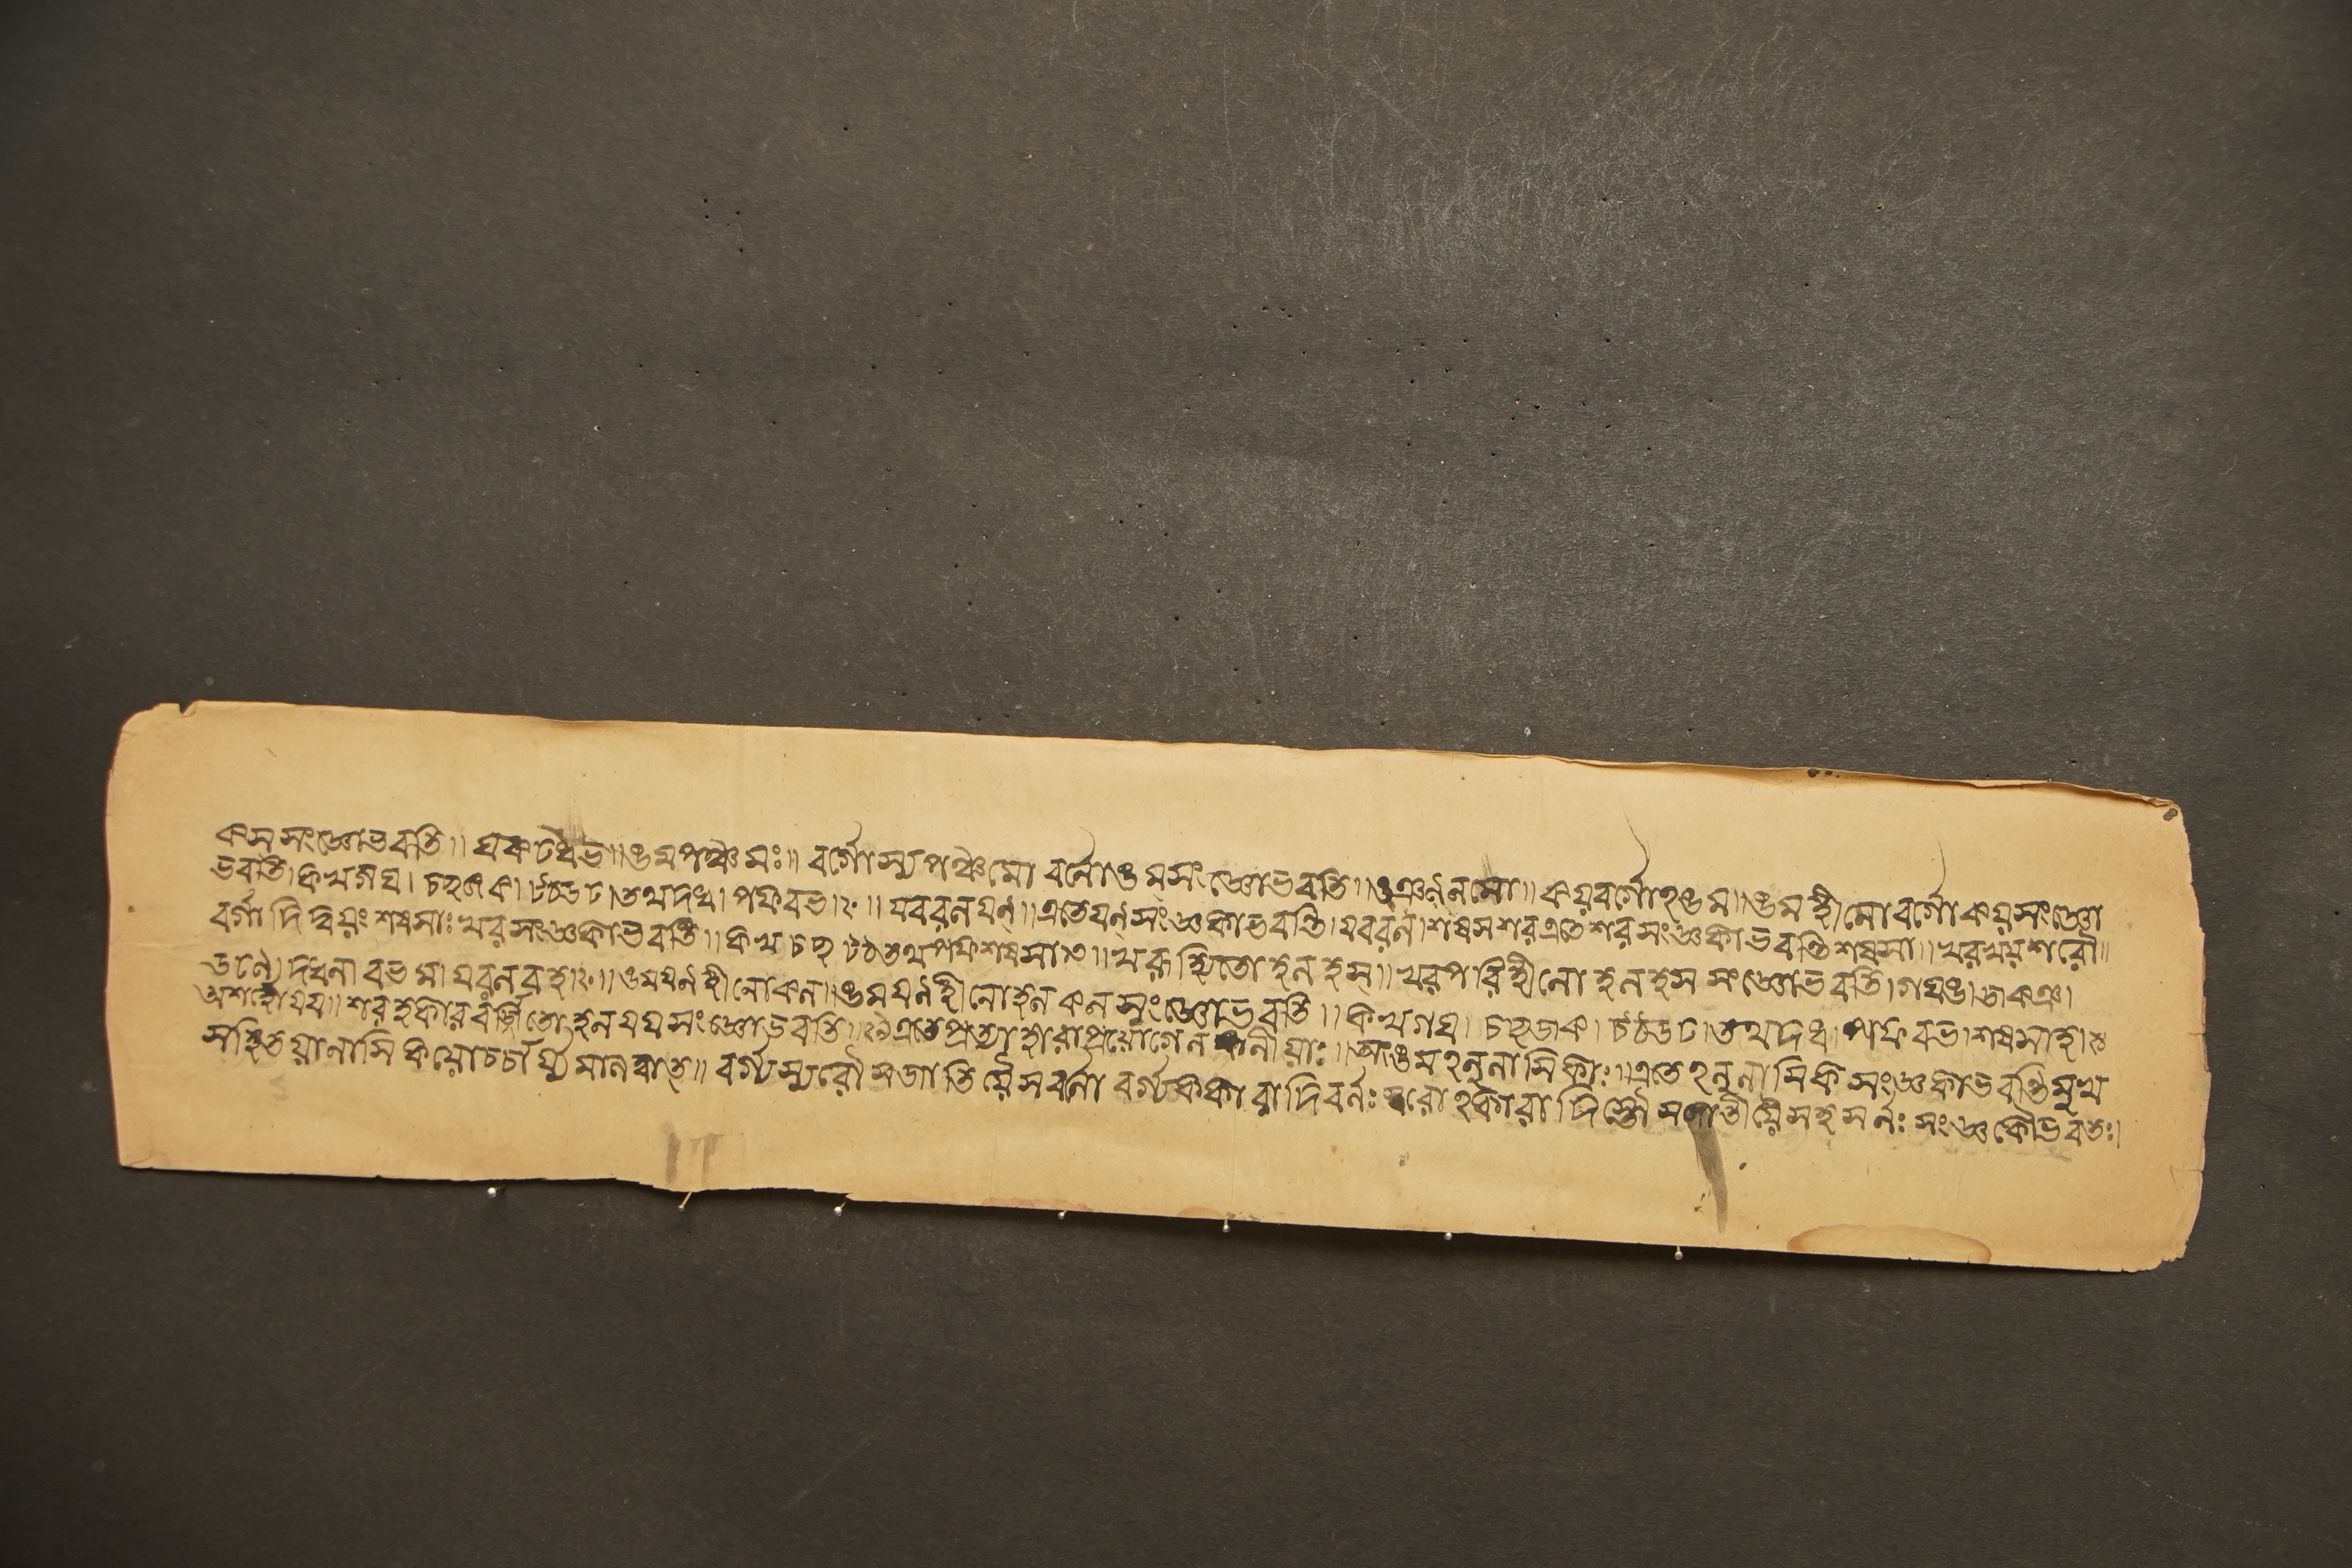 কস সংজ্ঞোভবতি॥ ঘঝঢধভ॥ঙমপঞ্চমঃ॥ বর্গোস্যপঞ্চমো বর্নোঙমসংজ্ঞোভবতি॥ঙঞনননমো॥ কয়বর্গোঽঙম॥ঙমহীনোবর্গোকয়সংজ্ঞো
ভবতি।কখগঘ। চছজঝ। টঠডঢ।তথদধ। পফবভ।২॥ যবরলযন্॥এতেযনসংজ্ঞকাভবন্তি।যবরল।শষসশরএতেশরসংজ্ঞকাভবন্তিশষসা॥খরখয়শরৌ॥
বর্গাদিদ্বিয়ংশষসাঃখরসংজ্ঞকাভবন্তি॥কখচছটঠতথপফশষসা৩॥খরূহিতোহনহস্॥খরপরিহীনো হনহসসংজ্ঞোভবতি।গঘঙ।জঝঞ।
ডঢণ। দধনা বভমা যবরলহ।২॥ঙমযনহীনোঝন॥ঙমযনহীনোহনঝনসংজ্ঞোভবতি॥কখগঘ। চছজঝ। টঠডঢ।তথদধ।পফবভ।শষসাহ।
অশহোযয॥শরহকারবর্জিতোহনযয়সংজ্ঞোভবতি॥এতেপ্রত্যাহারাপ্রয়োগেন নীয়াঃ॥অংঙমঽনুনাসিকাঃ॥এতেঽনুনাসিকসংজ্ঞকাভবন্তিমুখ
সহিতয়ানাসিকয়োচ্চার্য্যমানত্বাৎ॥ বর্গ্যস্বরৌ সজাতিয়ৈসবর্না বর্গ্যককারাদিবর্নঃস্বরোঽকারাদিস্তৌ সজাতীয়ৈসহসর্নঃ সংজ্ঞকৌভবতঃ।